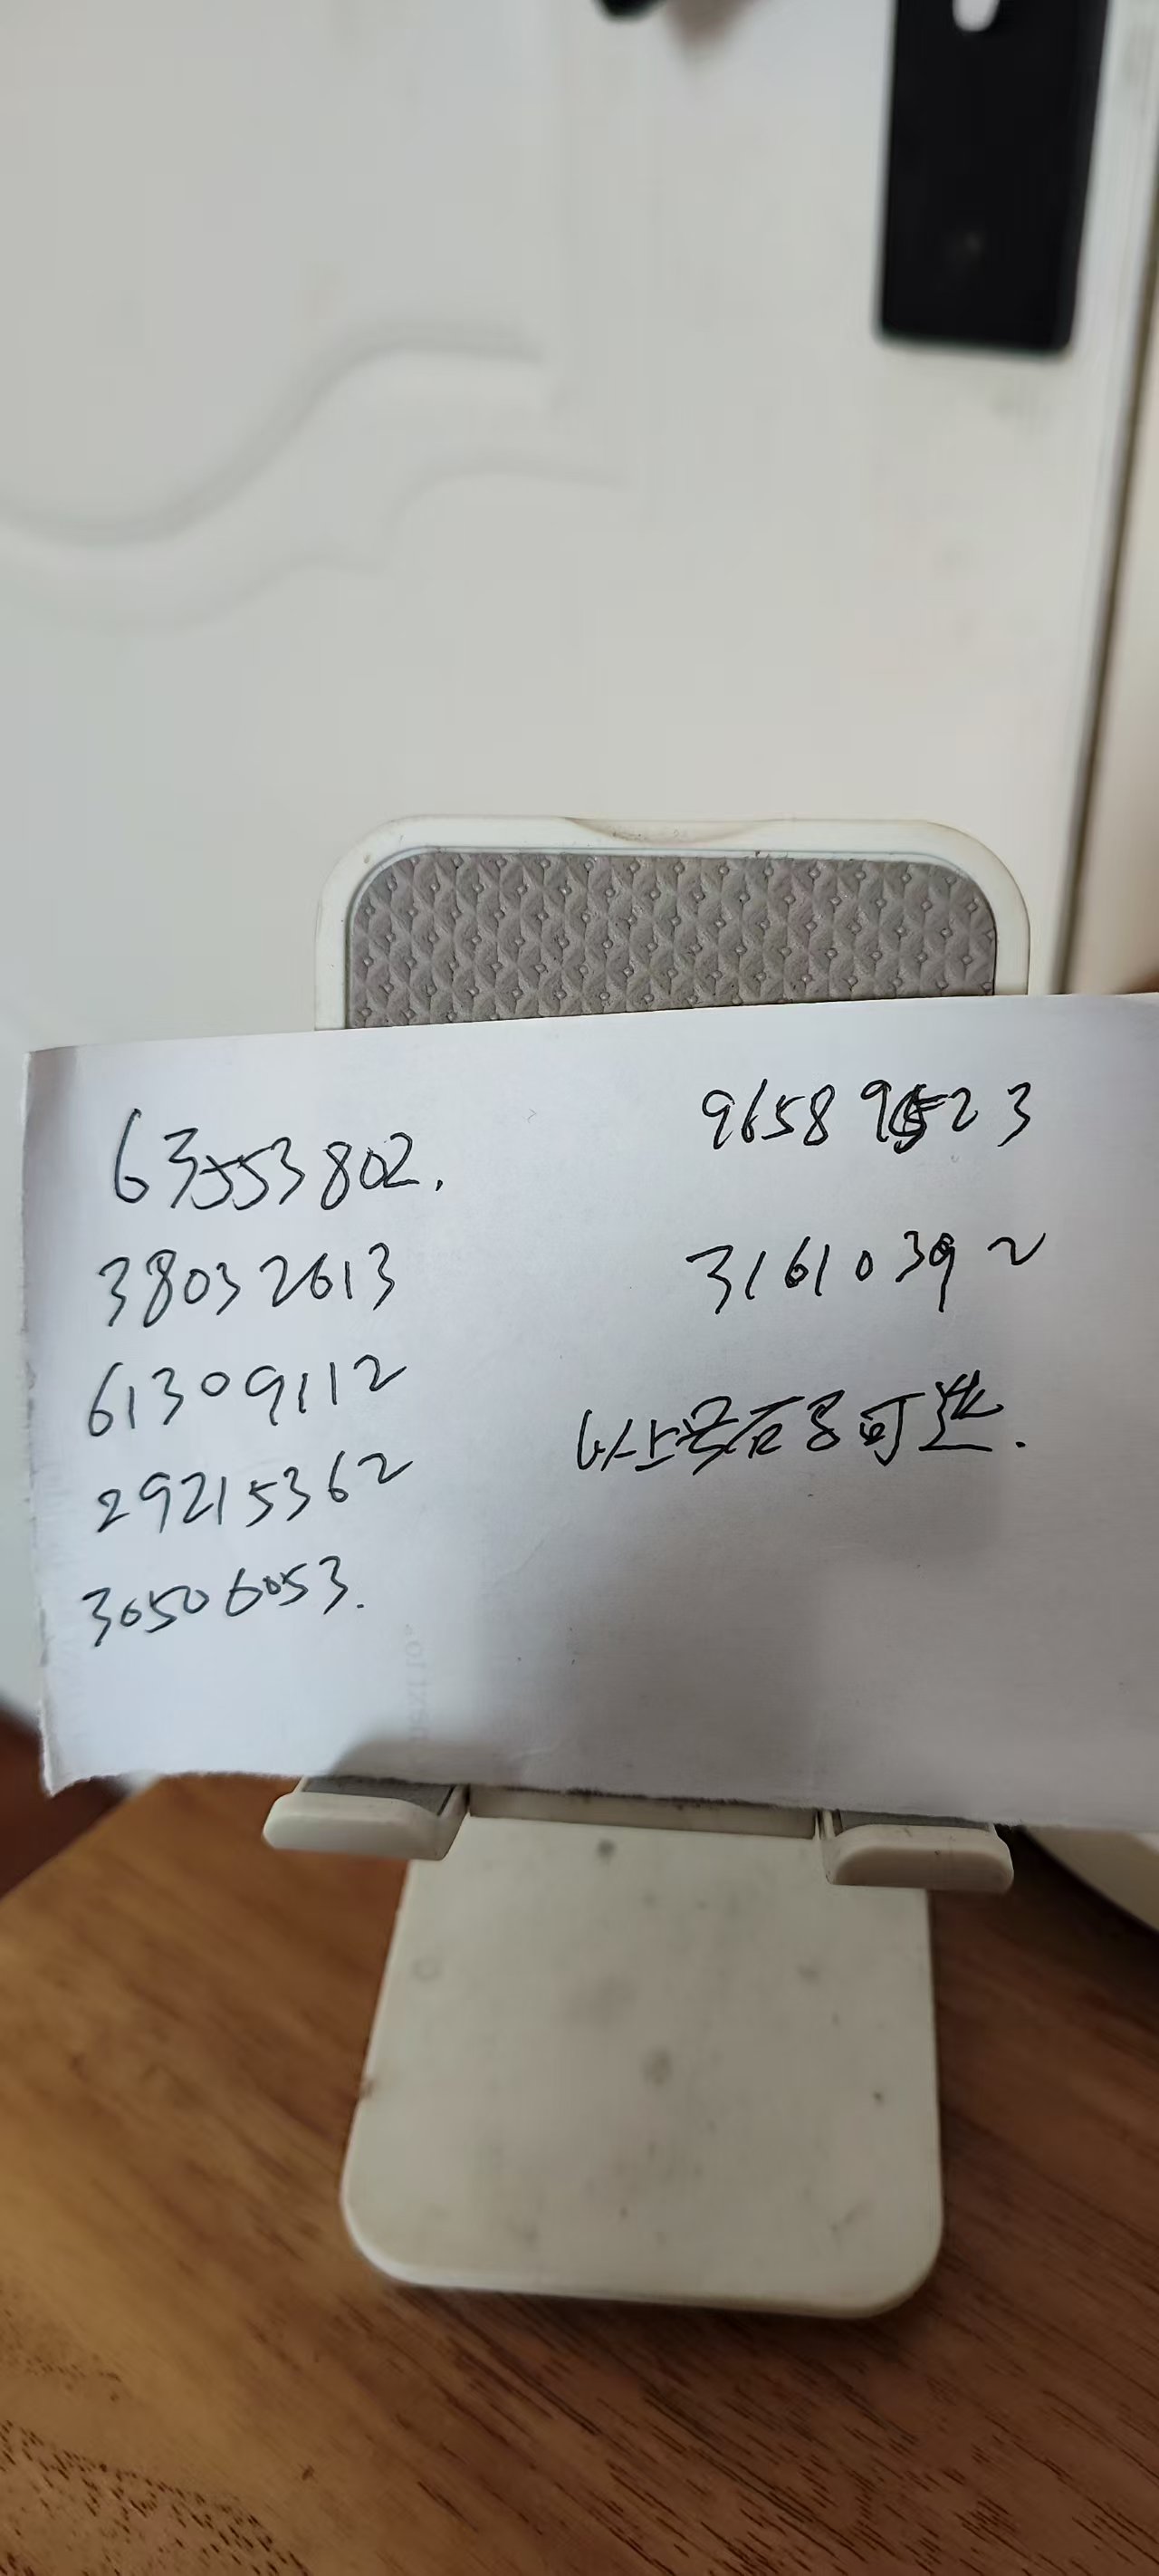 63553802.
38032613
61309112
29215362
30506053.
96589523
31610392
以上号有多可选.